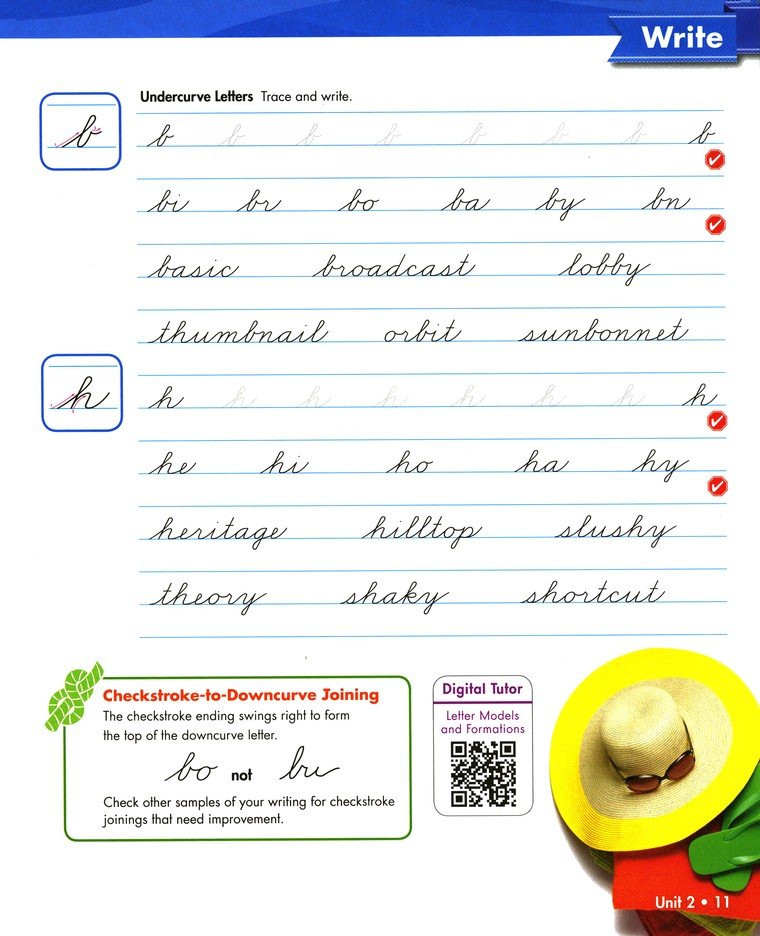 Write
Undercurve Letters Trace and write.
b
b b b b b b b b
bi br bo ba by bn
basic broadcast lobby
thumbnail orbit sunbonnet
h
h h h h h h h h
he hi ho ha hy
heritage hilltop slushy
theory shaky shortcut
Checkstroke-to-Downcurve Joining
The checkstroke ending swings right to form
the top of the downcurve letter.
bo not
Check other samples of your writing for checkstroke
joinings that need improvement.
Digital Tutor
Letter Models
and Formations
Unit 2 • 11